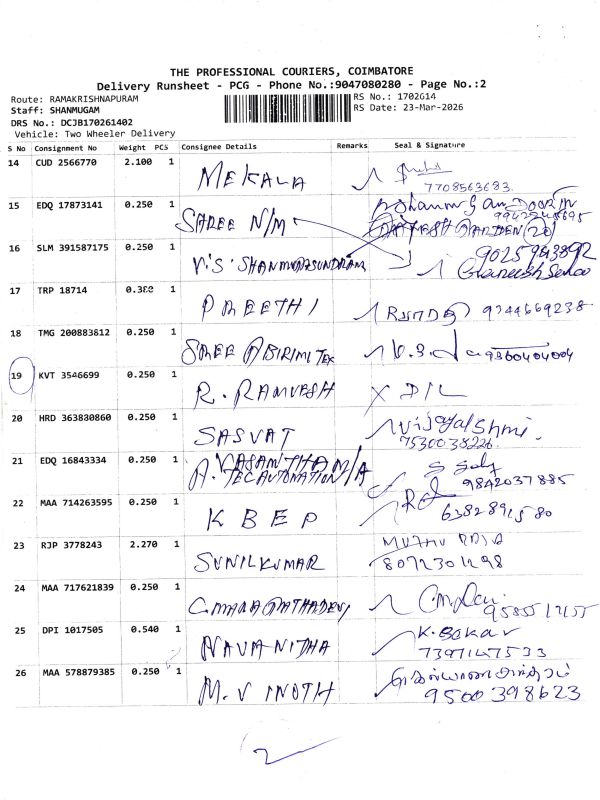 THE PROFESSIONAL COURIERS, COIMBATORE
Delivery Runsheet - PCG - Phone No.:9047080280 - Page No.:2
Route: RAMAKRISHNAPURAM RS No.: 1702614
Staff: SHANMUGAM RS Date: 23-Mar-2026
DRS No.: DCJB170261402
Vehicle: Two Wheeler Delivery
S No Consignment No Weight PCS Consignee Details Remarks Seal & Signature
14 CUD 2566770 2.100 1 MEKALA
7708563683
15 EDQ 17873141 0.250 1 SHREE N/M
16 SLM 391587175 0.250 1 V.S. SHANMUGASUNDRAM
17 TRP 18714 0.388 1 PREETHI 9744669238
18 TMG 200883812 0.250 1 SHREE ABIRIMI TEX 9360404004
19 KVT 3546699 0.250 1 R. RAMVESH X D/L
20 HRD 363830860 0.250 1 SASVAT Vijayalshmi
7530038226
21 EDQ 16843334 0.250 1 A. VASANTHA M/A
TEC AUTOMATION 9842037885
22 MAA 714263595 0.250 1 K B E P
6382891580
23 RJP 3778243 2.270 1 SUNILKUMAR MUTHU RAJA
8072301298
24 MAA 717621839 0.250 1
25 DPI 1017505 0.540 1 NAVANITHA K. Baka
7397147533
26 MAA 578879385 0.250 1 M. VINOTH
9500398623
2